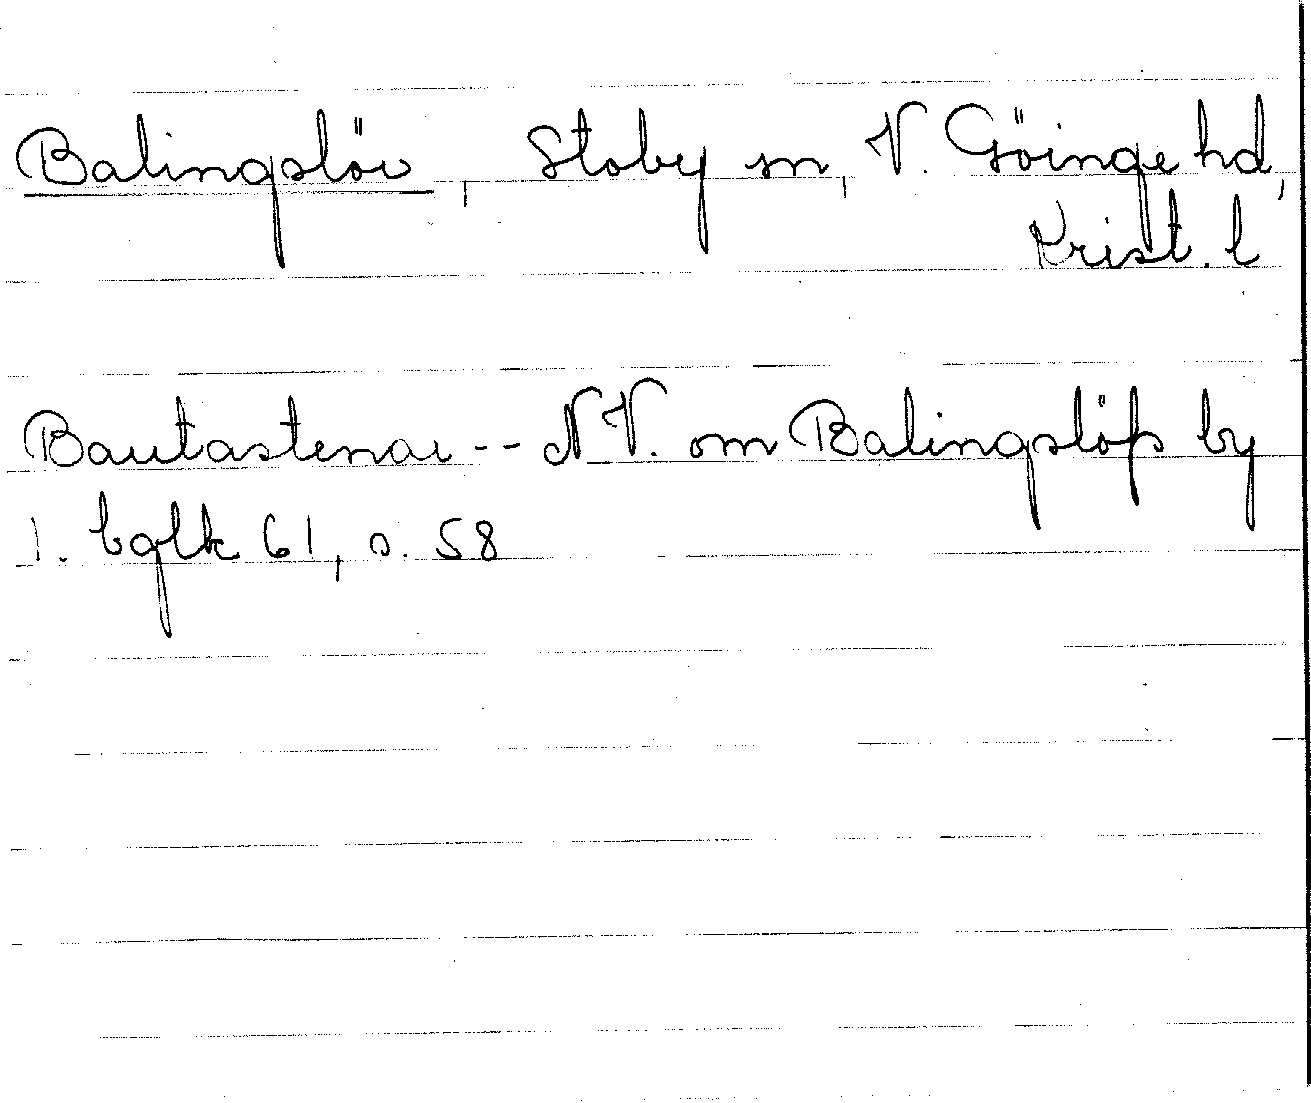 Balingslöv, Stoby sn, V. Göinge hd,
Krist. l
Bautastenar -- NV. om Balingslöfs by
1. bglk 61, s. 58